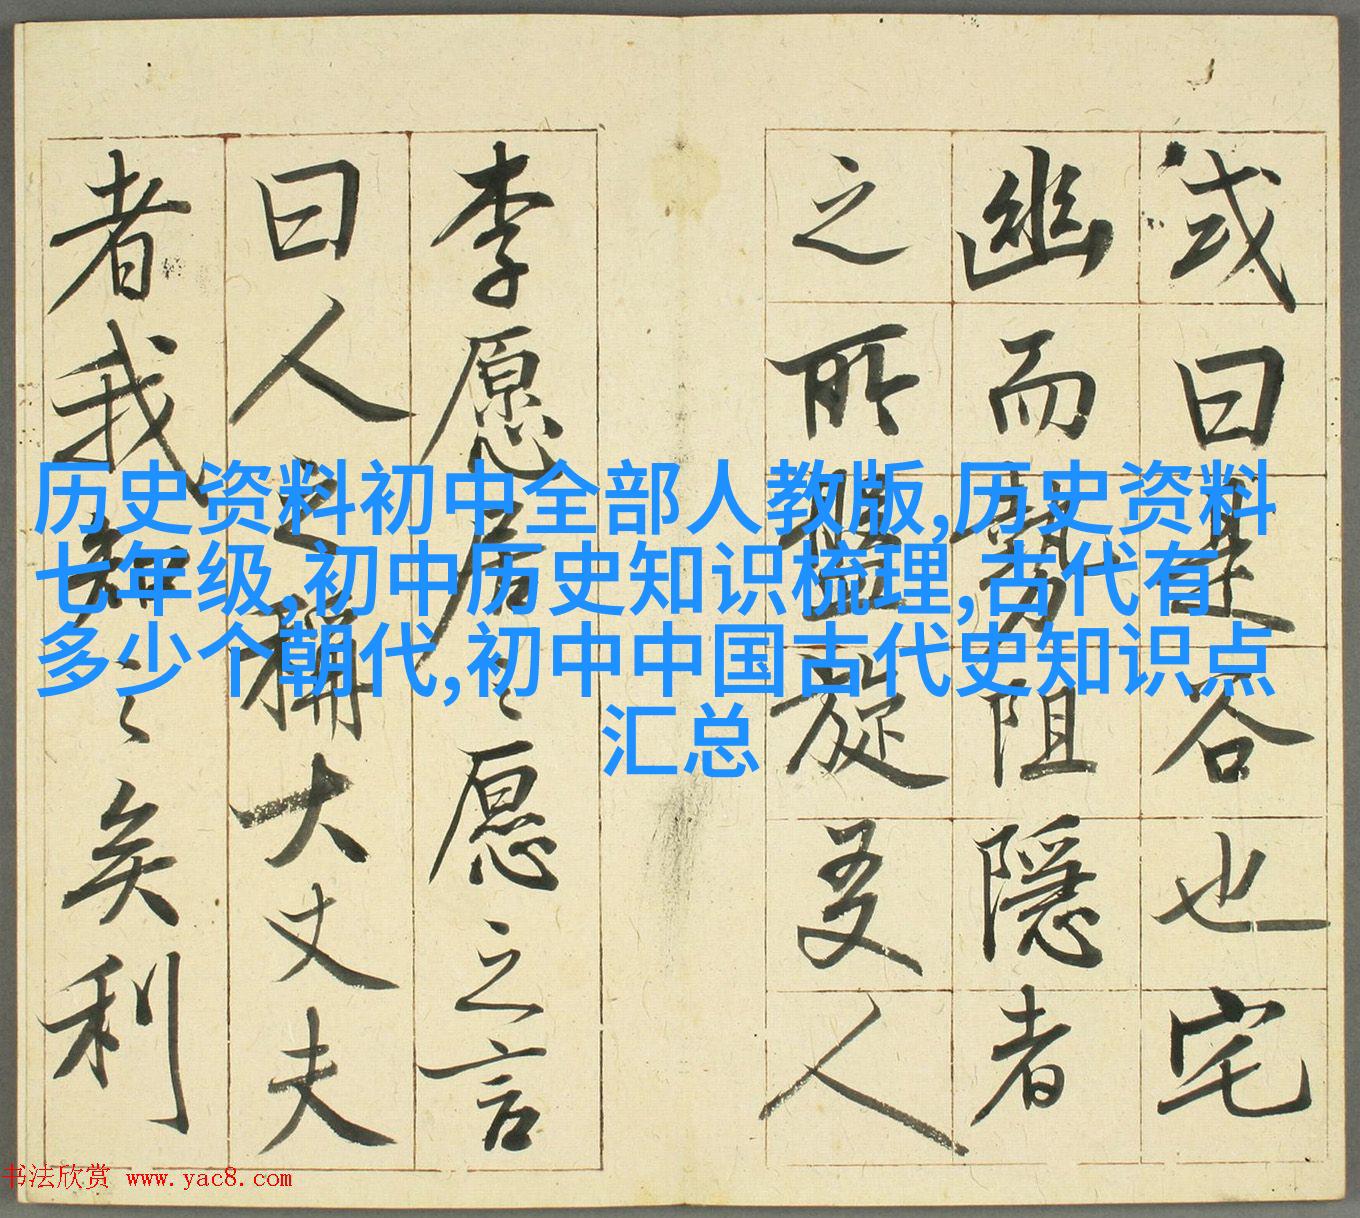 或曰是谷也宅
幽而势阻隐者
之所盘旋友人
李愿居之愿之言
曰人之称大丈夫
者我知之矣利
历史资料初中全部人教版,历史资料
七年级,初中历史知识梳理,古代有
多少个朝代,初中中国古代史知识点
汇总
书法欣赏 www.yac8.com